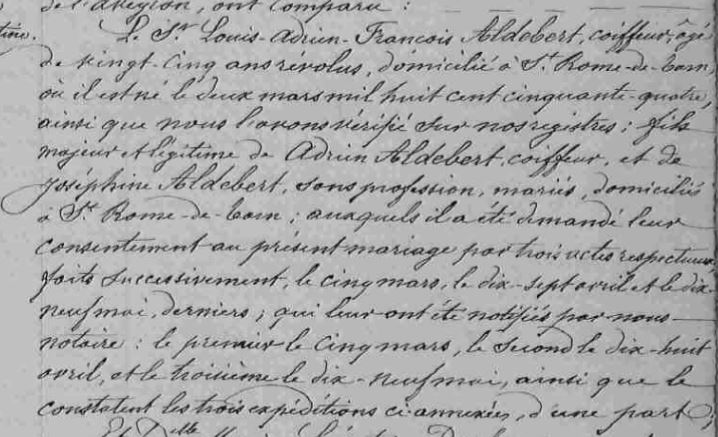 de l'Aveyron, ont comparu :
Le Sr Louis-Adrien-François Aldebert, coiffeur, âgé
de vingt-cinq ans révolus, domicilié à St Rome-de-Tarn,
où il est né le deux mars mil huit cent cinquante-quatre,
ainsi que nous l'avons vérifié sur nos registres ; fils
majeur et légitime de Adrien Aldebert, coiffeur, et de
Joséphine Aldebert, sans profession, mariés, domiciliés
à St Rome-de-Tarn ; auxquels il a été demandé leur
consentement au présent mariage par trois actes respectueux,
faits successivement, le cinq mars, le dix-sept avril et le dix-
neuf mai, derniers ; qui leur ont été notifiés par nous
notaire : le premier le cinq mars, le second le dix-huit
avril, et le troisième le dix-neuf mai, ainsi que le
constatent les trois expéditions ci-annexées, d'une part ;
Et Dlle